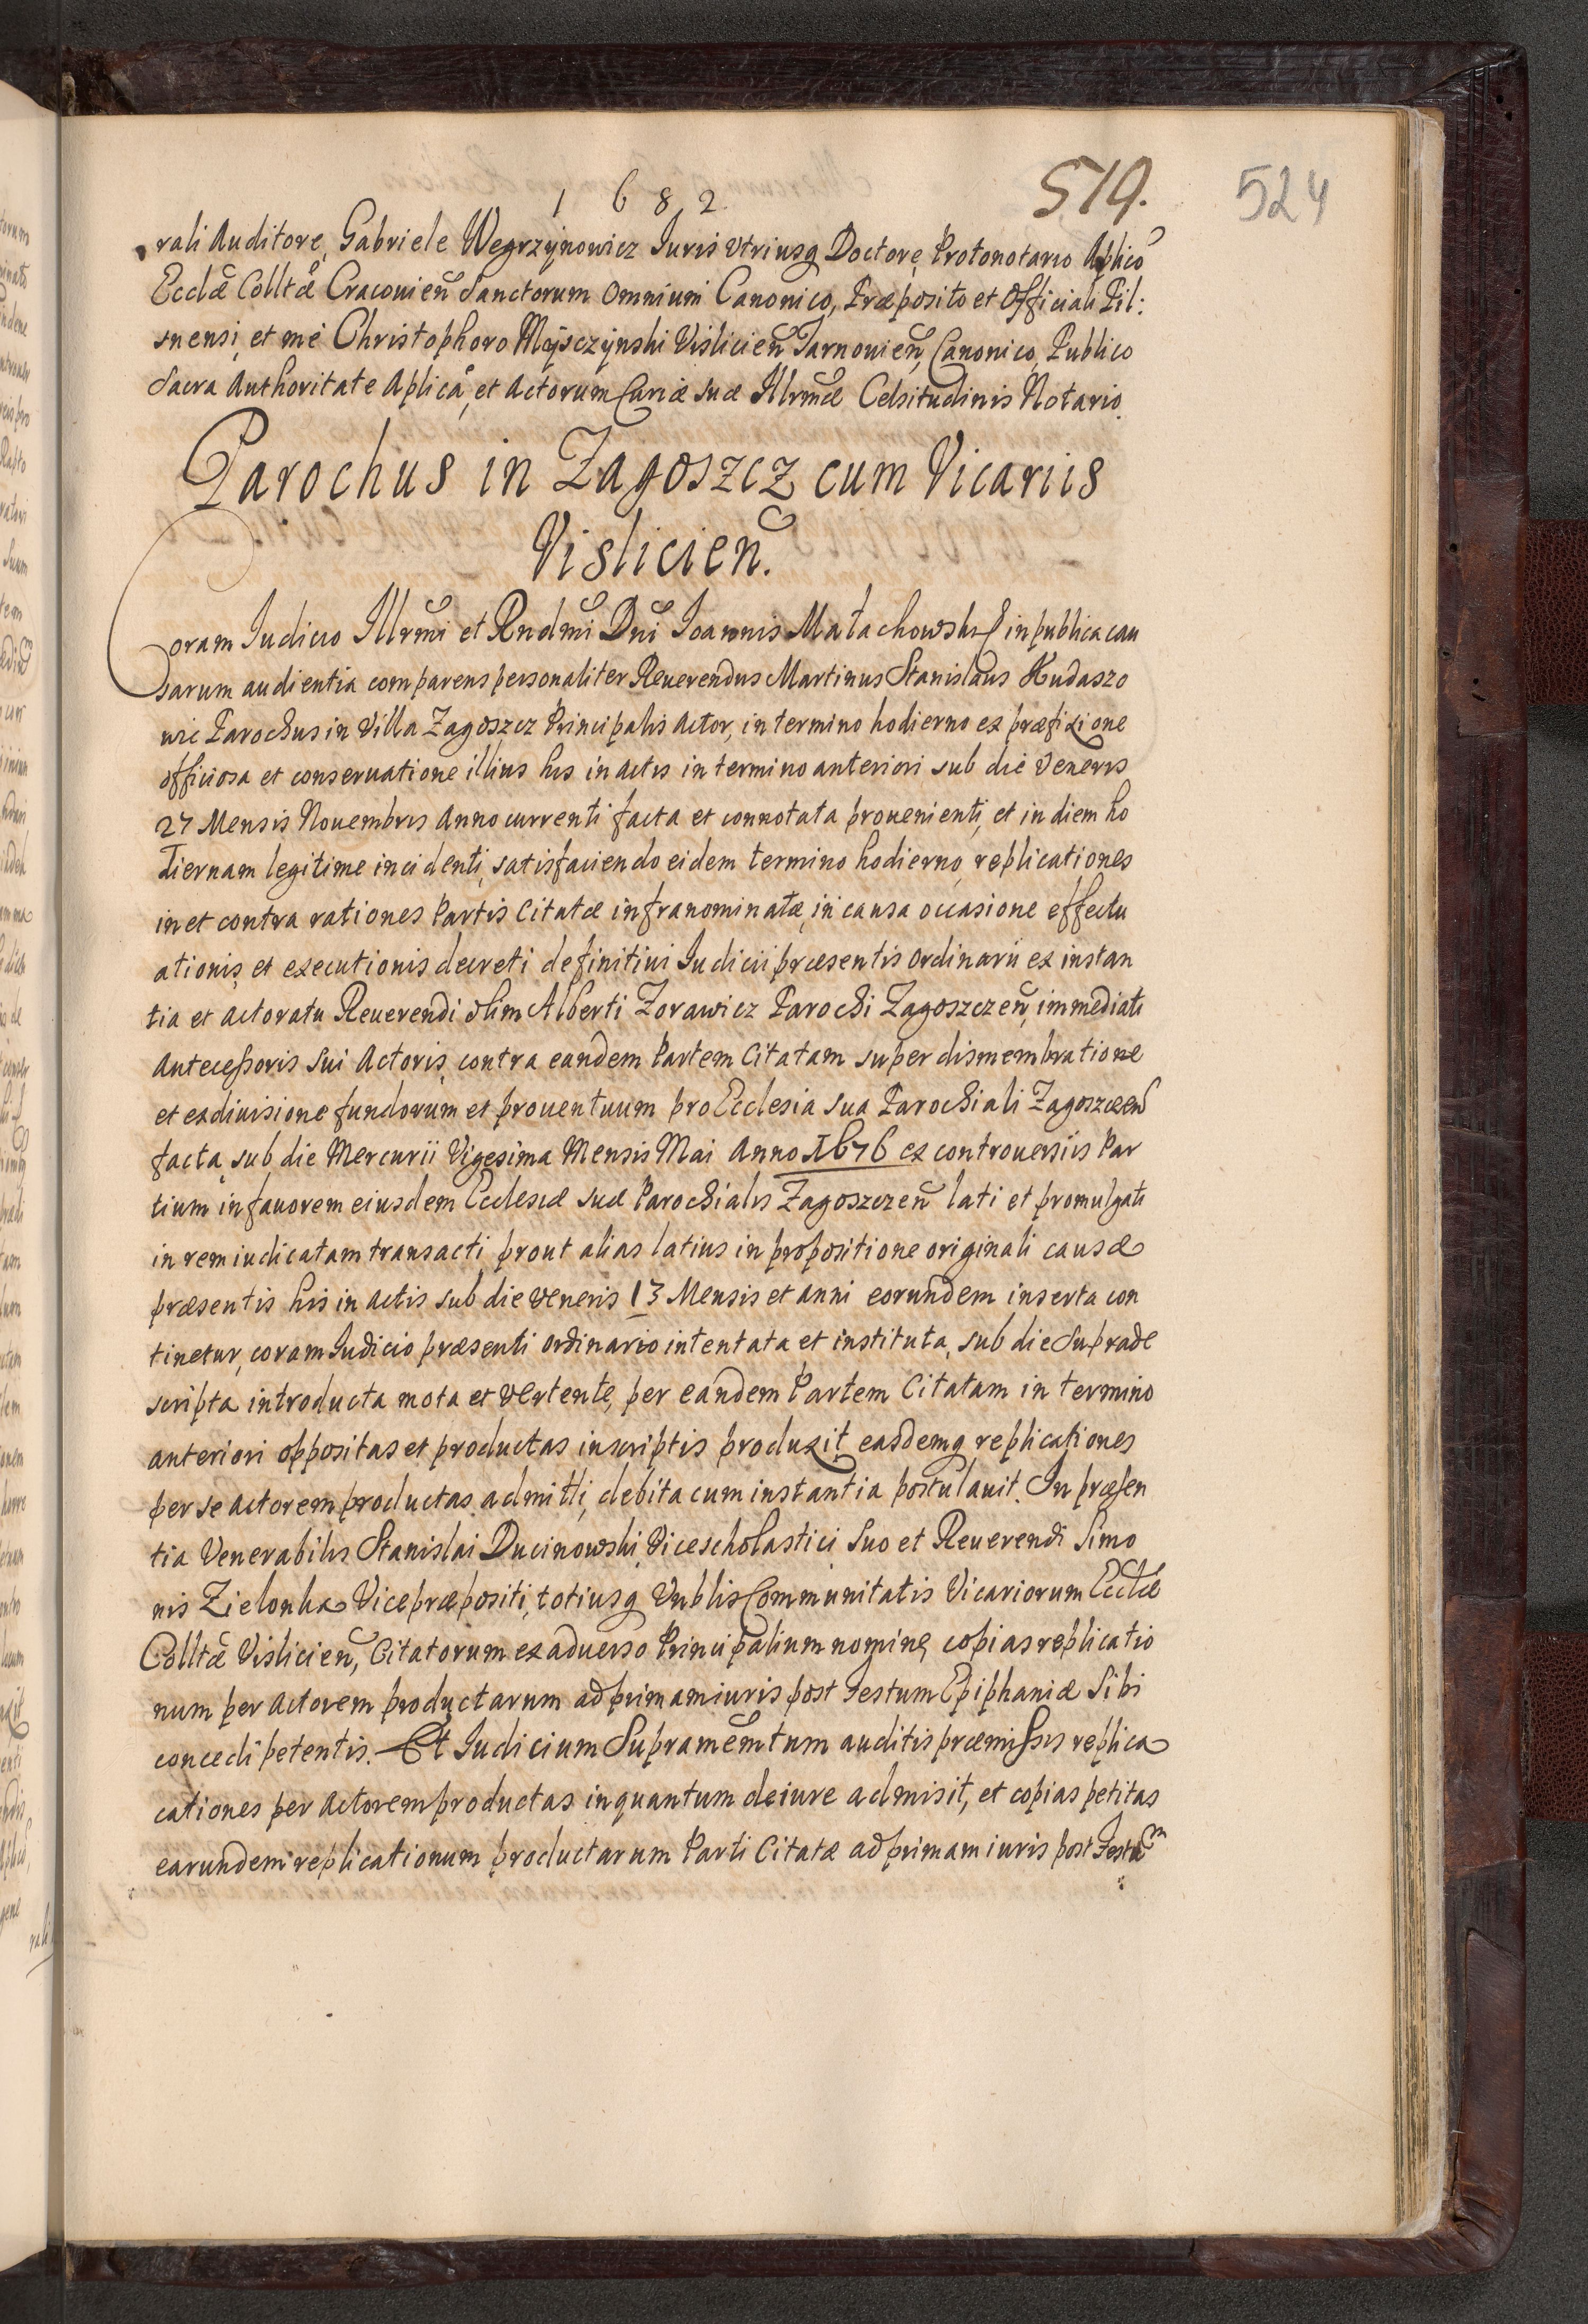 1682
519.
524
rali Auditore, Gabriele Wegrzÿnowicz Iuris Vtriusq Doctore, Protonotario Aplico
Ecclæ Colltæ Cracouien̄ Sanctorum Omnium Canonico, Præposito et Officiali Pil:
snensi, et me Christophoro Mÿsczÿnski Vislicien̄ Tarnouien̄ Canonico, Publico
Sacra Authoritate Aplica, et Actorum Curiæ suæ Illrmæ Celsitudinis Notario.
Parochus in Zagoszcz cum Vicariis
Vislicien̄.
Coram Iudicio Illrmi et Rndmi Dni Ioannis Małachowski in publica cau
sarum audientia comparens personaliter Reuerendus Martinus Stanislaus Kudaszo
wic Parochus in Villa Zagoszcz Principalis Actor, in termino hodierno ex præfixione
officiosa et conseruatione illius his in actis in termino anteriori sub die Veneris
27 Mensis Nouembris Anno currenti facta et connotata prouenienti, et in diem ho
diernam legitime incidenti, satisfaciendo eidem termino hodierno, replicationes
in et contra rationes Partis Citatæ infranominatæ, in causa occasione effectu
ationis, et executionis decreti definitiui Iudicii præsentis ordinarii ex instan
tia et actoratu Reuerendi olim Alberti Zorawicz Parochi Zagoszczen̄, immediati
Antecessoris sui Actoris, contra eandem Partem Citatam super dismembratione
et exdiuisione fundorum et prouentuum pro Ecclesia sua Parochiali Zagoszczen̄
facta, sub die Mercurii Vigesima Mensis Mai Anno 1676 ex controuersiis Par
tium in fauorem eiusdem Ecclesiæ suæ Parochialis Zagoszczen̄ lati et promulgati
in rem iudicatam transacti, prout alias latius in propositione originali causæ
præsentis his in actis sub die Veneris 13 Mensis et anni eorundem inserta con
tinetur, coram Iudicio præsenti ordinario intentata et instituta, sub die suprade
scripta introducta mota et vertente, per eandem Partem Citatam in termino
anteriori oppositas et productas inscriptis produxit, easdemq replicationes
per se actorem productas admitti, debita cum instantia postulauit. In præsen
tia Venerabilis Stanislai Ducinowski Vicescholastici suo et Reuerendi Simo
nis Zielonka Vicepræpositi, totiusq Vnblis Communitatis Vicariorum Ecclæ
Colltæ Vislicien̄, Citatorum ex aduerso Principalium nomine, copias replicatio
num per Actorem productarum ad primam iuris post Festum Epiphaniæ sibi
concedi petentis. Et Iudicium Supramēmtum auditis præmissis replica
cationes per Actorem productas inquantum de iure admisit, et copias petitas
earundem replicationum productarum Parti Citatæ ad primam iuris post Festum